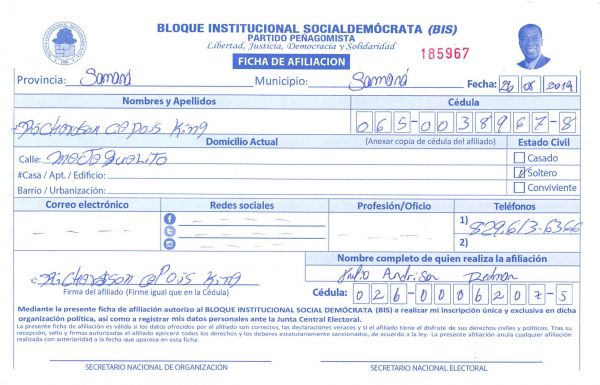 BLOQUE INSTITUCIONAL SOCIALDEMÓCRATA (BIS)
PARTIDO PEÑAGOMISTA
Libertad, Justicia, Democracia y Solidaridad
FICHA DE AFILIACION
185967
Provincia: Samaná Municipio: Samaná Fecha: 26 05 2019
Nombres y Apellidos Cédula
Richardson Capois King 065-0038967-8
Domicilio Actual (Anexar copia de cédula del afiliado) Estado Civil
Calle: Casado
#Casa / Apt. / Edificio: Soltero
Barrio / Urbanización: Conviviente
Correo electrónico Redes sociales Profesión/Oficio Teléfonos
1) 829.613-6366
2)
Nombre completo de quien realiza la afiliación
Richardson Capois King Julio Andrison Redman
Firma del afiliado (Firme igual que en la Cédula) Cédula: 026-0006207-5
Mediante la presente ficha de afiliación autorizo al BLOQUE INSTITUCIONAL SOCIAL DEMÓCRATA (BIS) a realizar mi inscripción única y exclusiva en dicha
organización política, así como a registrar mis datos personales ante la Junta Central Electoral.
La presente ficha de afiliación es válida si los datos ofrecidos por el afiliado son correctos, las declaraciones veraces y si el afiliado tiene el disfrute de sus derechos civiles y políticos. Tras su
recepción, sello y firmas autorizadas el afiliado ejercerá todos los derechos y los deberes estatutariamente sancionados, de acuerdo a la ley. La presente afiliación anula cualquier afiliación
realizada con anterioridad a la fecha que aparece en esta ficha.
SECRETARIO NACIONAL DE ORGANIZACIÓN SECRETARIO NACIONAL ELECTORAL